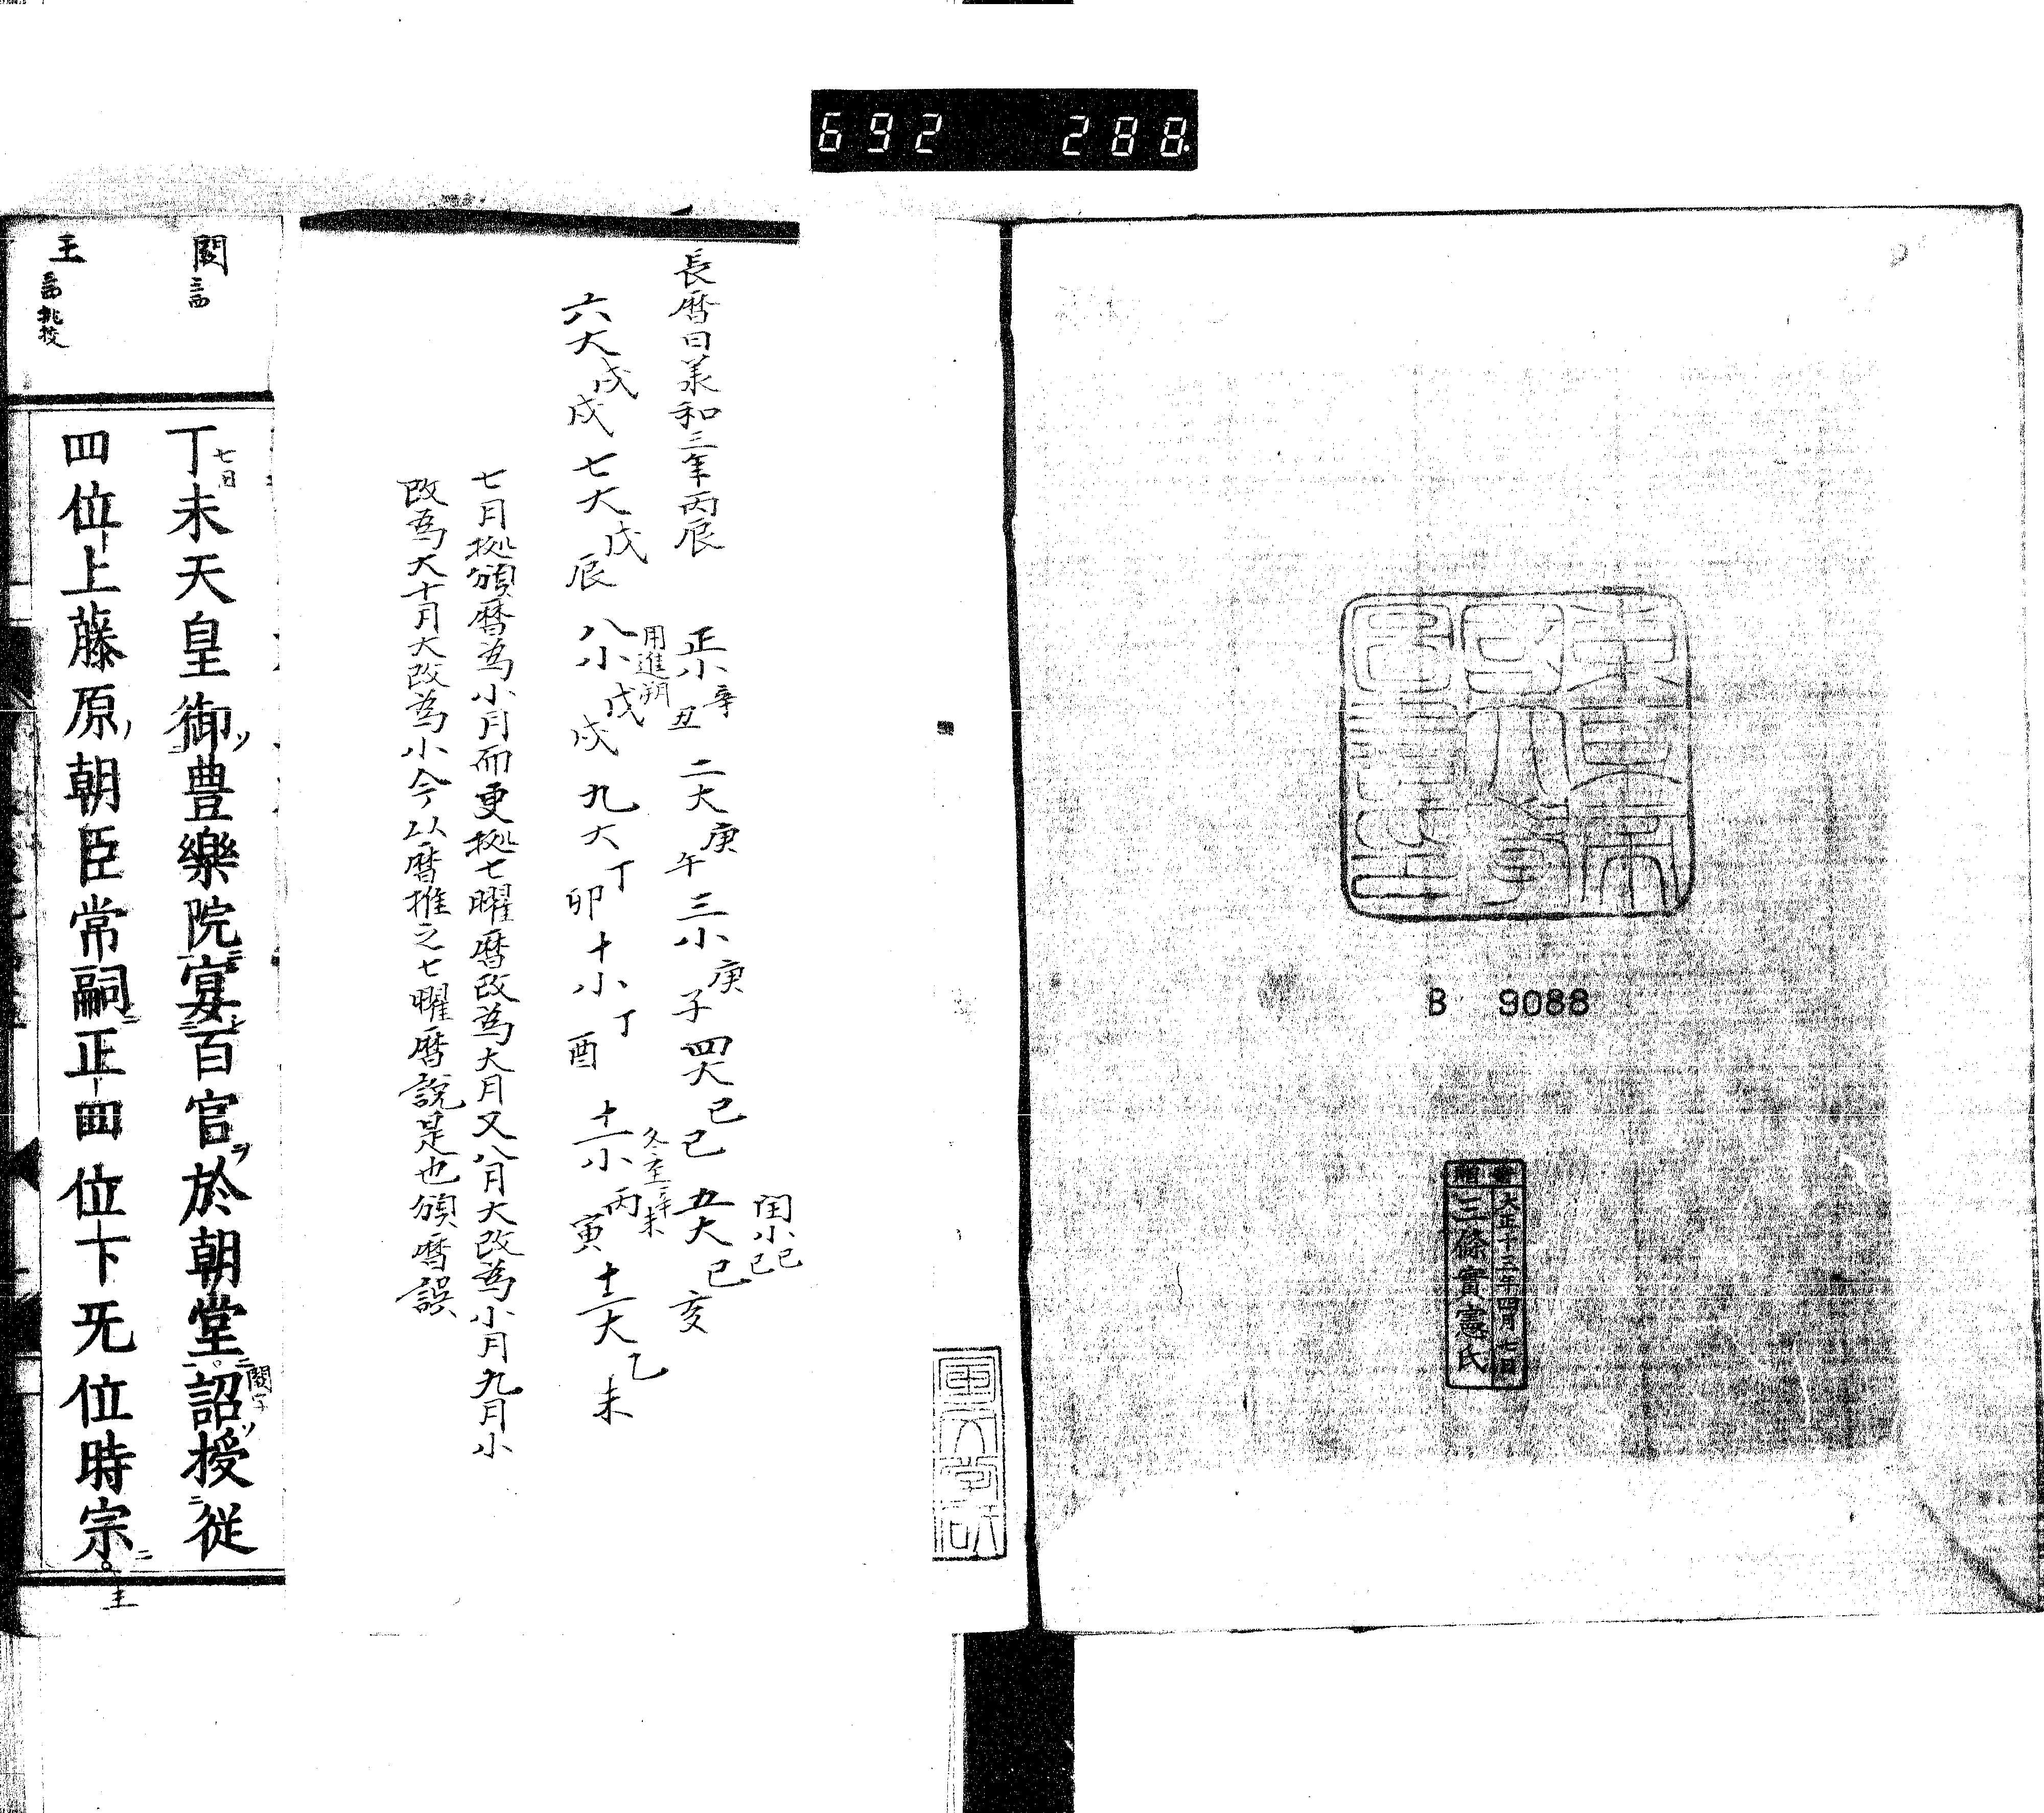 692 288
東京帝
國大學
圖書印
B 9088
寄贈
大正十三年四月七日
三條實憲氏
長暦曰兼和三年丙辰 正小辛丑 二大庚午 三小庚子 四大己巳 五大己亥
閏小己巳
用進朔
冬至辛未
六大戊戌 七大戊辰 八小戊戌 九大丁卯 十小丁酉 十一小丙寅 十二大乙未
七月拠頒暦為小月而更拠七曜暦改為大月又八月大改為小月九月小
改為大十月大改為小今以暦推之七曜暦説是也頒暦誤
闕 三西
七日
丁未天皇御豊樂院宴百官於朝堂詔授從
闕字
王
四位上藤原朝臣常嗣正四位下旡位時宗
王